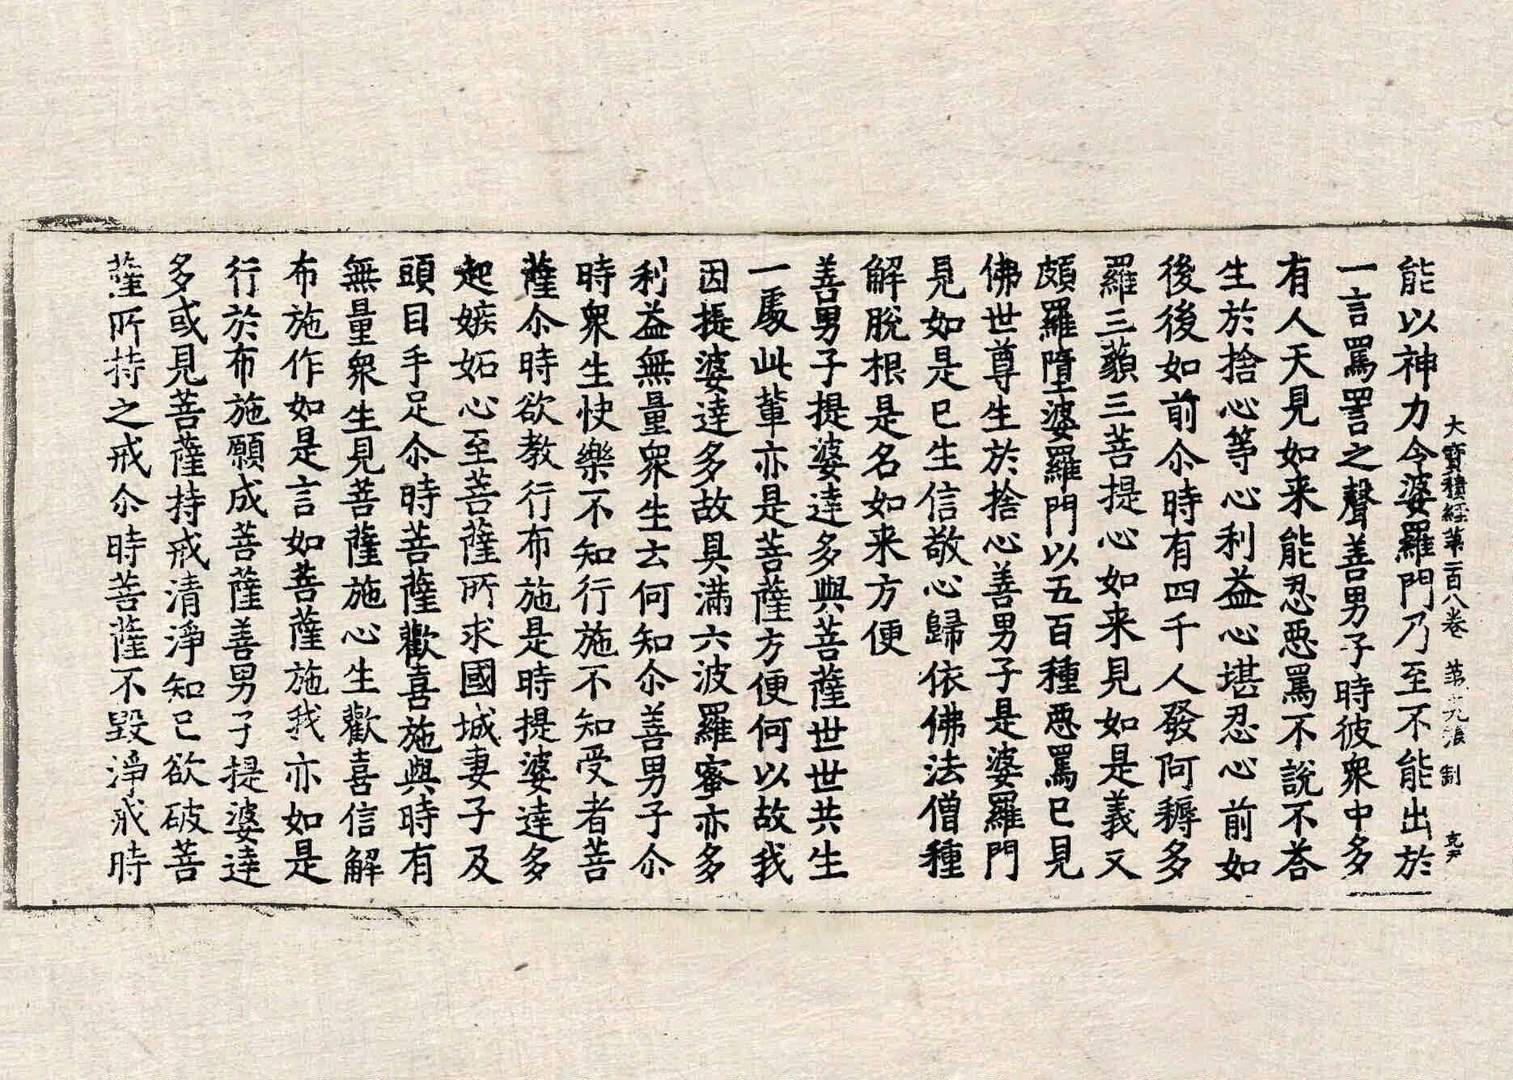 大寶積經第一百八卷　第十九張　制　克尹
能以神力今婆羅門乃至不能出於
一言罵詈之聲善男子時彼衆中多
有人天見如来能忍惡罵不說不荅
生於捨心等心利益心堪忍心前如
後後如前尒時有四千人發阿耨多
羅三藐三菩提心如来見如是義又
頗羅墮婆羅門以五百種惡罵已見
佛世尊生於捨心善男子是婆羅門
見如是已生信敬心歸依佛法僧種
解脫根是名如来方便
善男子提婆達多與菩薩世世共生
一處此輩亦是菩薩方便何以故我
因提婆達多故具滿六波羅蜜亦多
利益無量衆生云何知尒善男子尒
時衆生快樂不知行施不知受者菩
薩尒時欲教行布施是時提婆達多
起嫉妬心至菩薩所求國城妻子及
頭目手足尒時菩薩歡喜施與時有
無量衆生見菩薩施心生歡喜信解
布施作如是言如菩薩施我亦如是
行於布施願成菩薩善男子提婆達
多或見菩薩持戒清淨知已欲破菩
薩所持之戒尒時菩薩不毀淨戒時